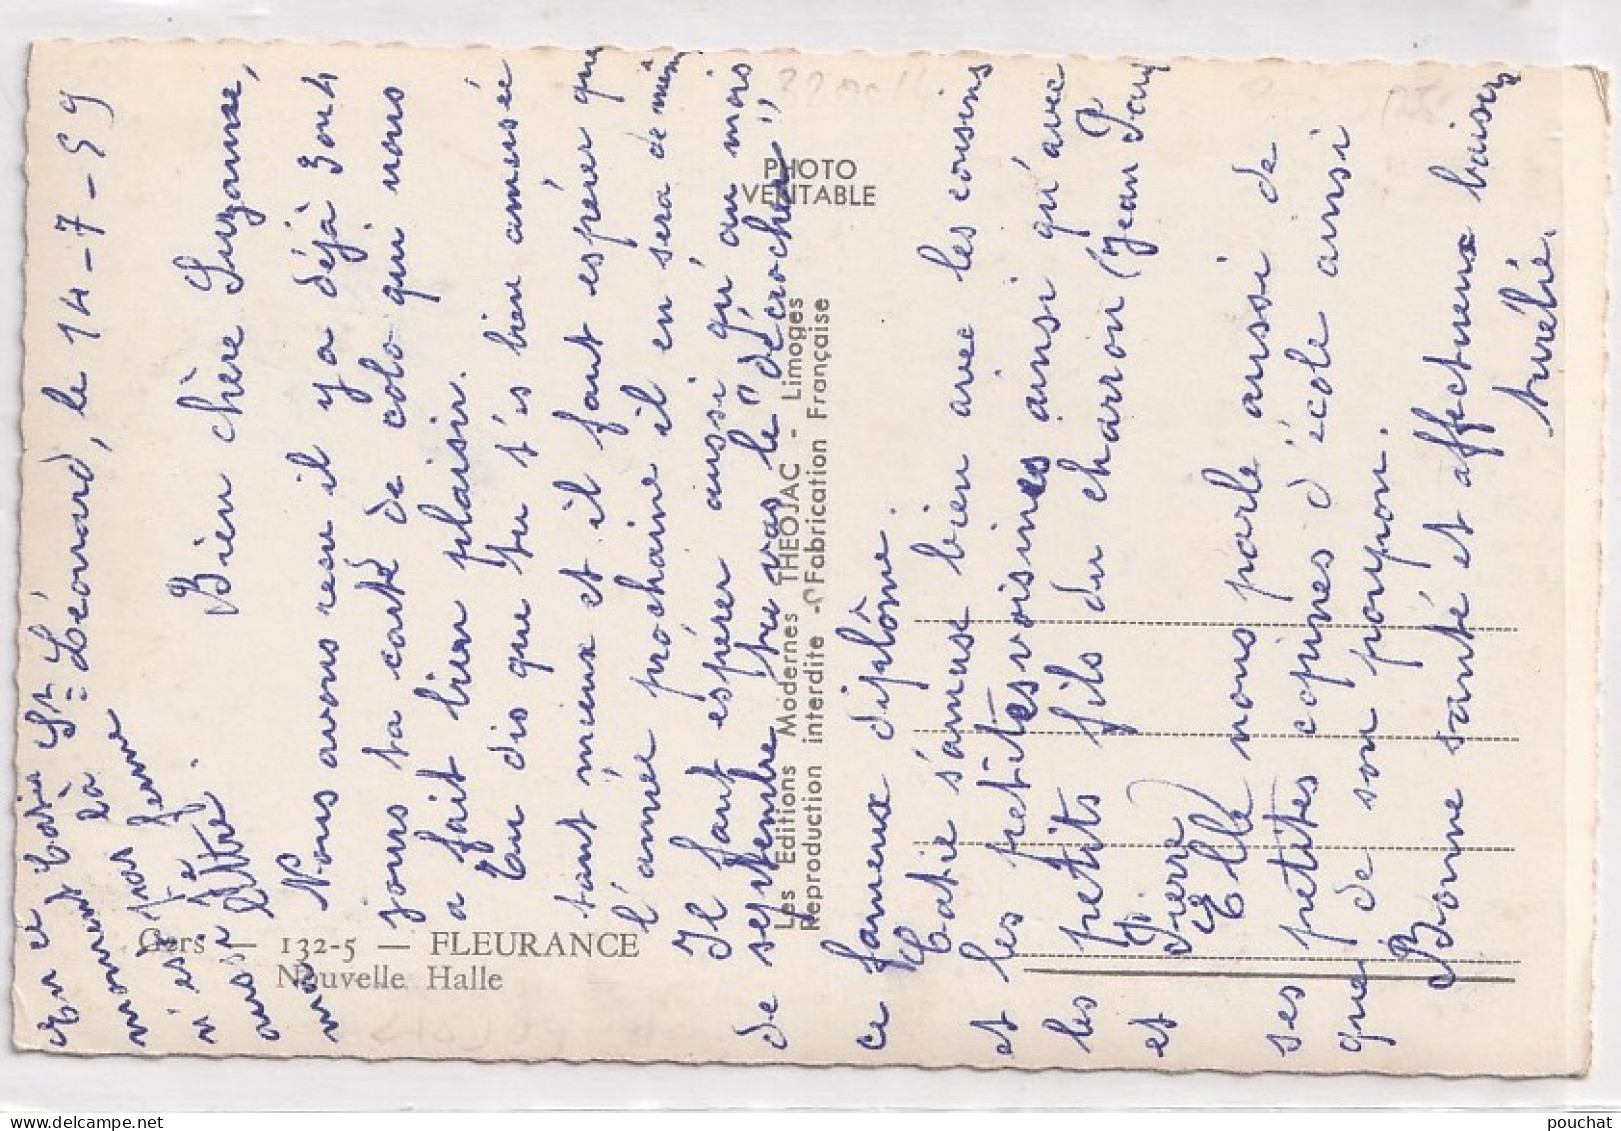 St Léonard, le 14-7-59
Bien chère Suzanne,
Nous avons reçu il y a déjà 3 ou 4
jours ta carte de colo qui nous
a fait bien plaisir.
Tu dis que tu t'es bien amusée
tant mieux et il faut espérer que
l'année prochaine il en sera de même
Il faut espérer aussi qu'au mois
de septembre tu vas le "décrocher"
ce fameux diplôme.
Catie s'amuse bien avec les cousins
et les petites voisines ainsi qu'avec
les petits fils du charron (Jean Paul
et Pierre)
Elle nous parle aussi de
ses petites copines d'école ainsi
que de son poupon.
Bonne santé et affectueux baisers
En ce
moment là
n'est pas
aussi
PHOTO
VERITABLE
Les Editions Modernes THEOJAC - Limoges
Reproduction interdite - Fabrication Française
Gers — 132-5 — FLEURANCE
Nouvelle Halle
pouchat